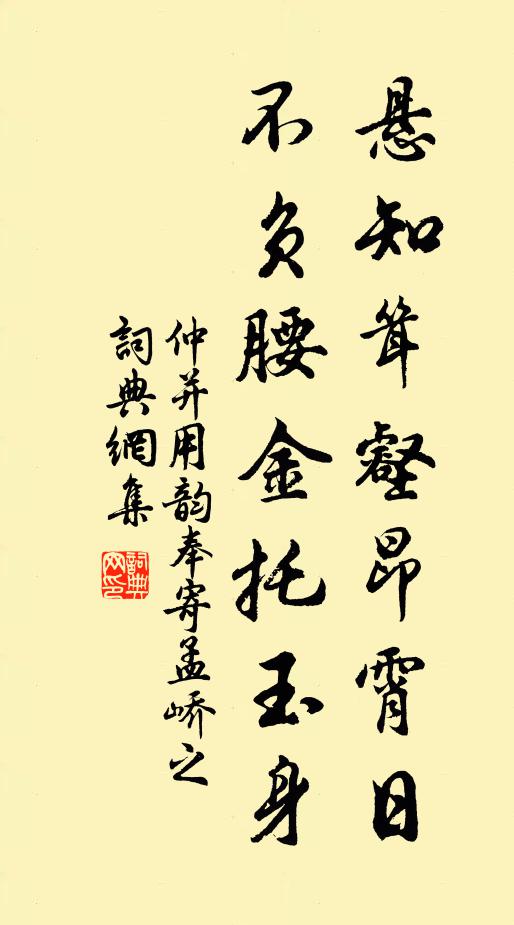 悬知耸壑昂霄日
不负腰金托玉身
仲并用韵奉寄孟峤之
詞典網集
詞典网印